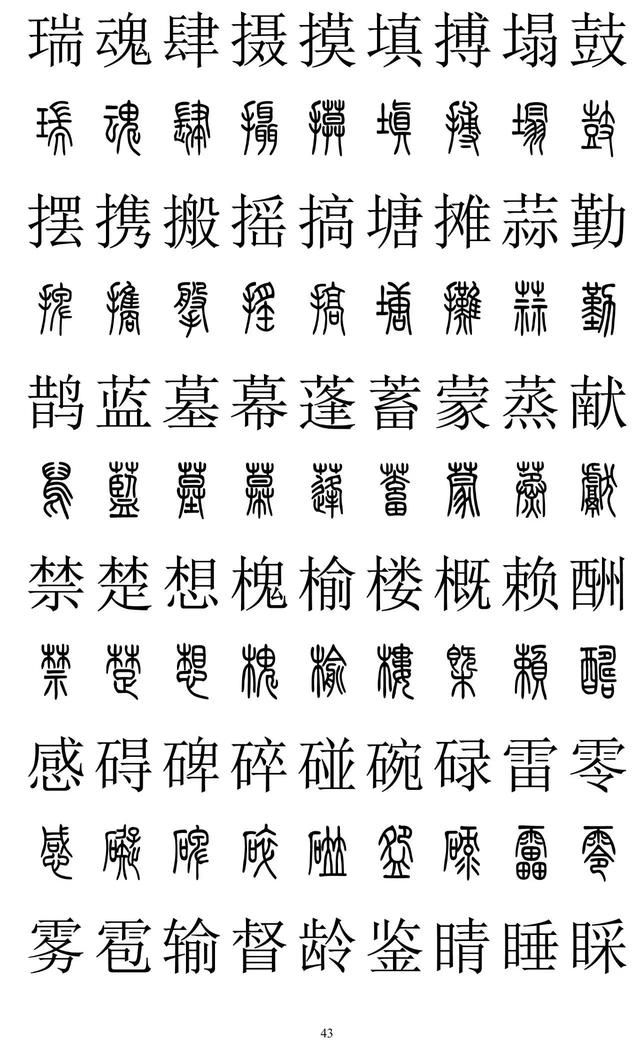 瑞魂肆摄摸填搏塌鼓
瑞魂肆攝摸填搏塌鼓
摆携搬摇搞塘摊蒜勤
捭攜搫搖搞塘攤蒜勤
鹊蓝墓幕蓬蓄蒙蒸献
舄藍墓幕蓬蓄蒙蒸獻
禁楚想槐榆楼概赖酬
禁楚想槐榆樓概賴醻
感碍碑碎碰碗碌雷零
感礙碑碎碰盌碌靁零
雾雹输督龄鉴睛睡睬
43